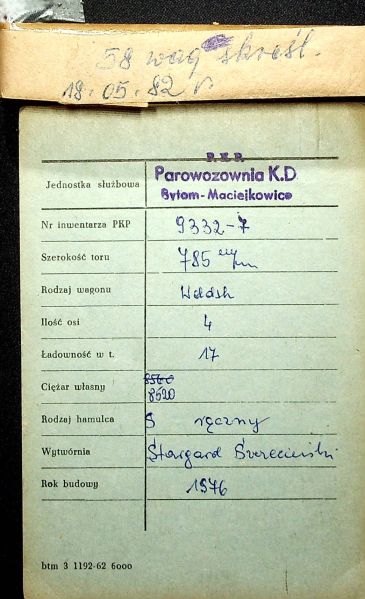 58 wag skreśl.
18.05.82 r
P.K.P.
Jednostka służbowa Parowozownia K.D
Bytom-Maciejkowice
Nr inwentarza PKP 9332-7
Szerokość toru 785 m/m
Rodzaj wagonu Wddsh
Ilość osi 4
Ładowność w t. 17
8560
Ciężar własny 8520
Rodzaj hamulca S ręczny
Wytwórnia Stargard Szczeciński
Rok budowy 1976
btm 3 1192-62 6000